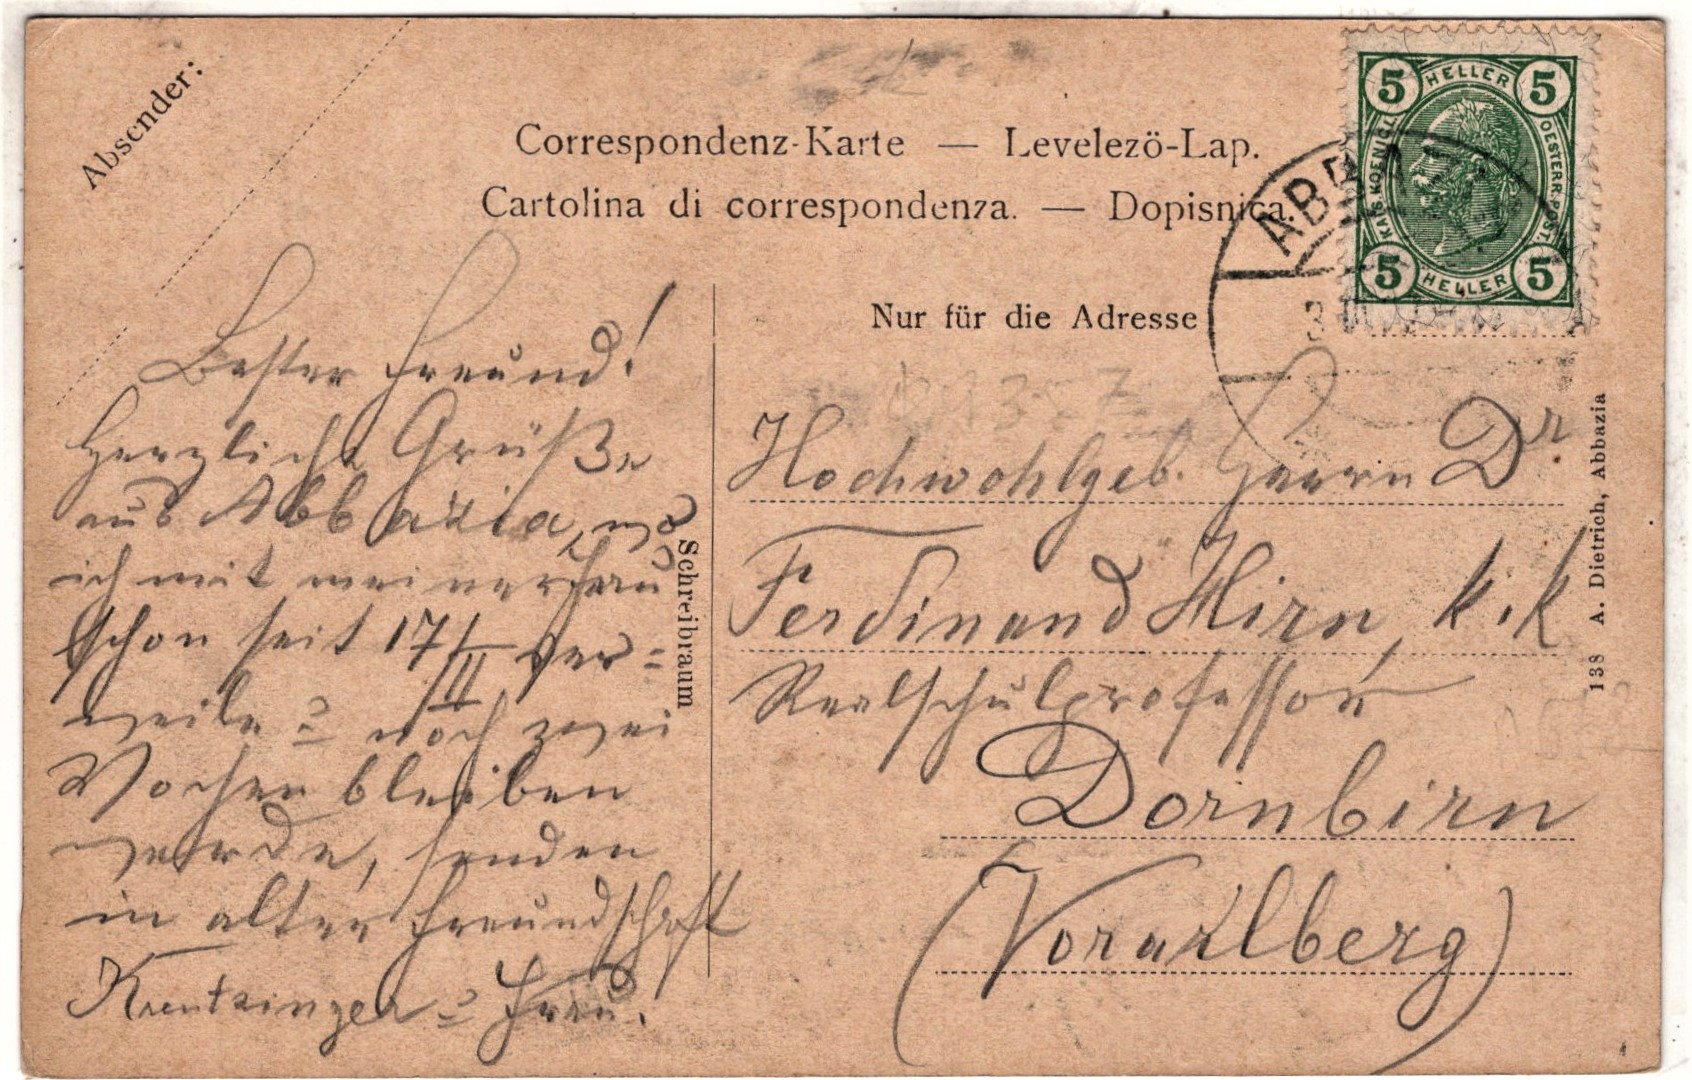 Absender:
Correspondenz-Karte — Levelezö-Lap.
Cartolina di correspondenza. — Dopisnica.
5 HELLER 5
KAIS. KOENIGL. OESTERR. POST.
5 HELLER 5
ABBAZIA
Nur für die Adresse
Bester Freund!
Herzliche Grüße
aus Abbazia, wo
ich mit meiner Frau
schon seit 17/III ver=
weile u noch zwei
Wochen bleiben
werde, senden
in alter Freundschaft
Kreutzinger u Frau.
Schreibraum
Hochwohlgeb. Herrn Dr
Ferdinand Hirn, k. k
Realschulprofessor
Dornbirn
(Vorarlberg)
138 A. Dietrich, Abbazia